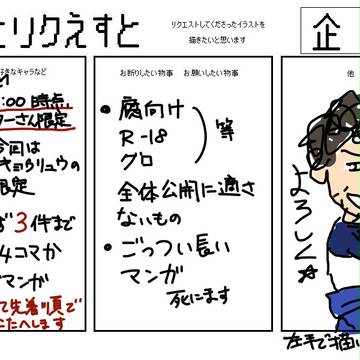 とリクえすと
リクエストしてくださったイラストを
描きたいと思います
企
好きなキャラなど
:00 時点、
ターさん限定
今回は
キョウリュウの
限定
ず3件まで
4コマか
マンガ
て先着順で
こたへします
お断りしたい物事 お願いしたい物事
●腐向け
R-18
グロ
等
全体公開に適さ
ないもの
●ごっつい長い
マンガ
死にます
他
よろしく☆
左手で描い